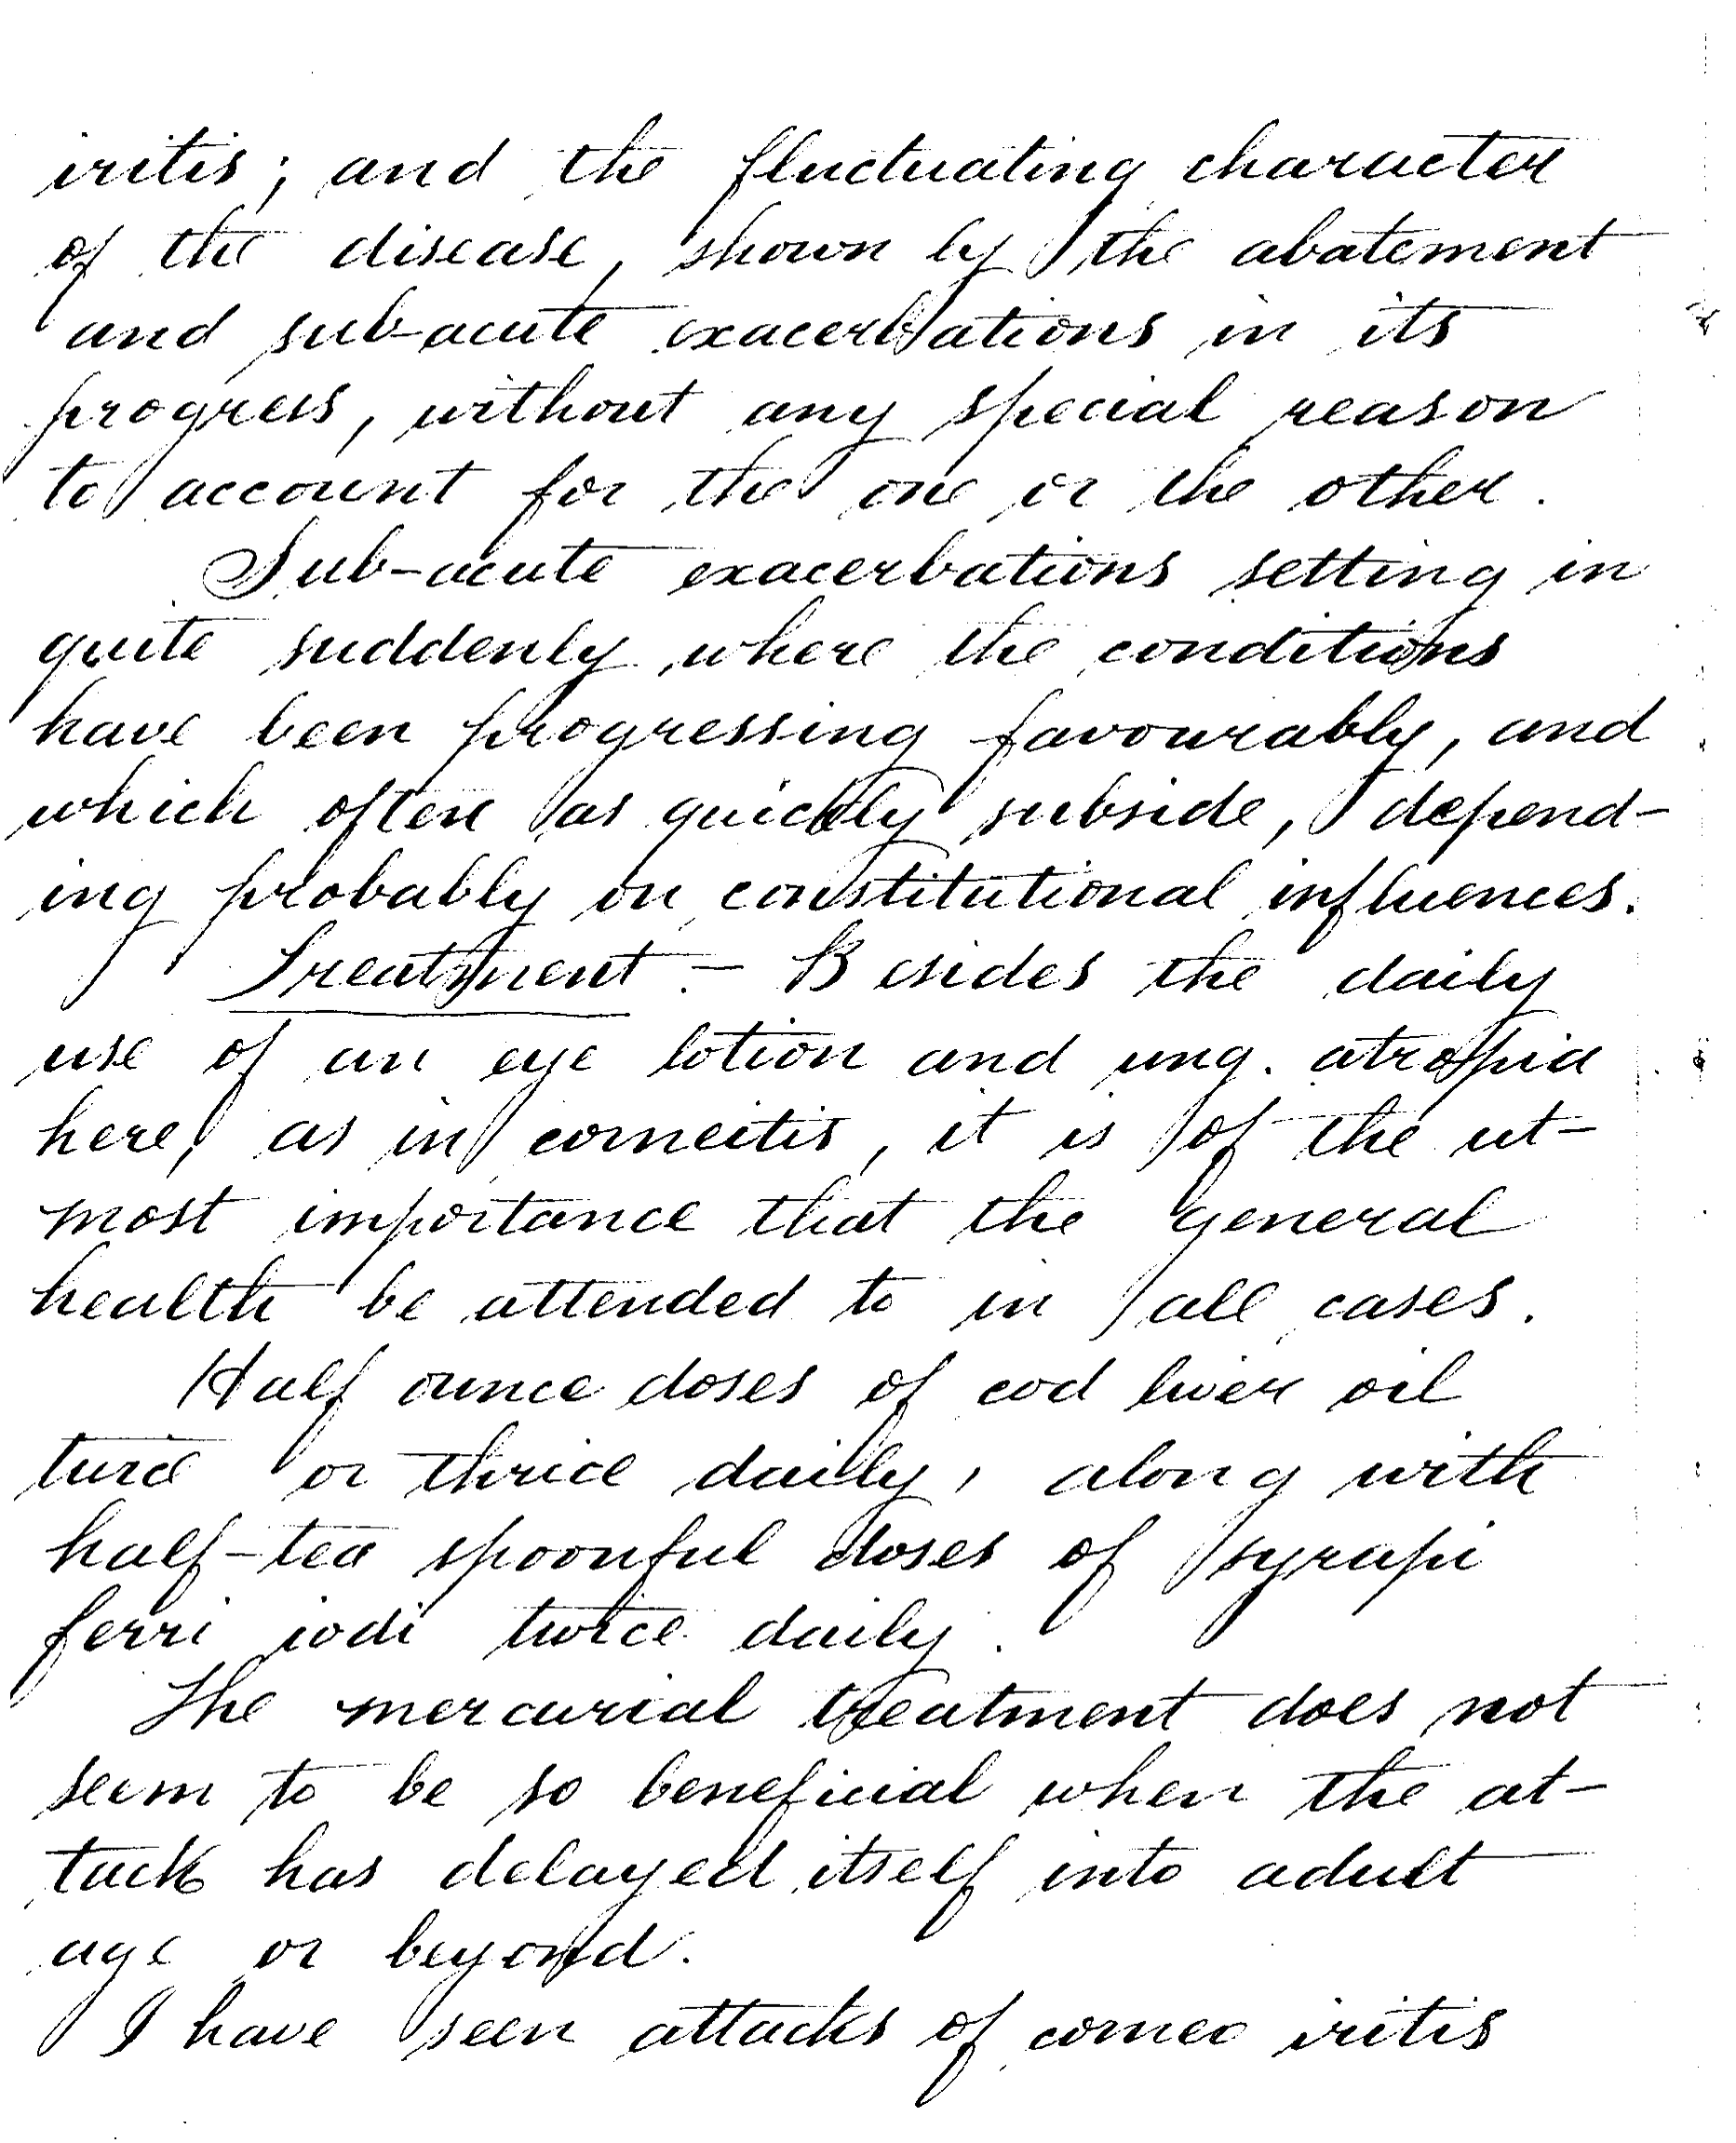 iritis; and the fluctuating character
of the disease, shown by the abatement
and sub-acute exacerbations in its
progress, without any special reason
to account for the one or the other.
Sub-acute exacerbations setting in
quite suddenly where the conditions
have been progressing favourably, and
which often as quickly subside, depend-
ing probably on constitutional influences.
Treatment - Besides the daily
use of an eye lotion and ung. atropia
here, as in corneitis, it is of the ut-
most importance that the general
health be attended to in all cases.
Half ounce doses of cod liver oil
twice or thrice daily, along with
half-tea spoonful doses of syrupi
ferri iodi twice daily.
The mercurial treatment does not
seem to be so beneficial when the at-
tack has delayed itself into adult
age or beyond.
I have seen attacks of corneo iritis